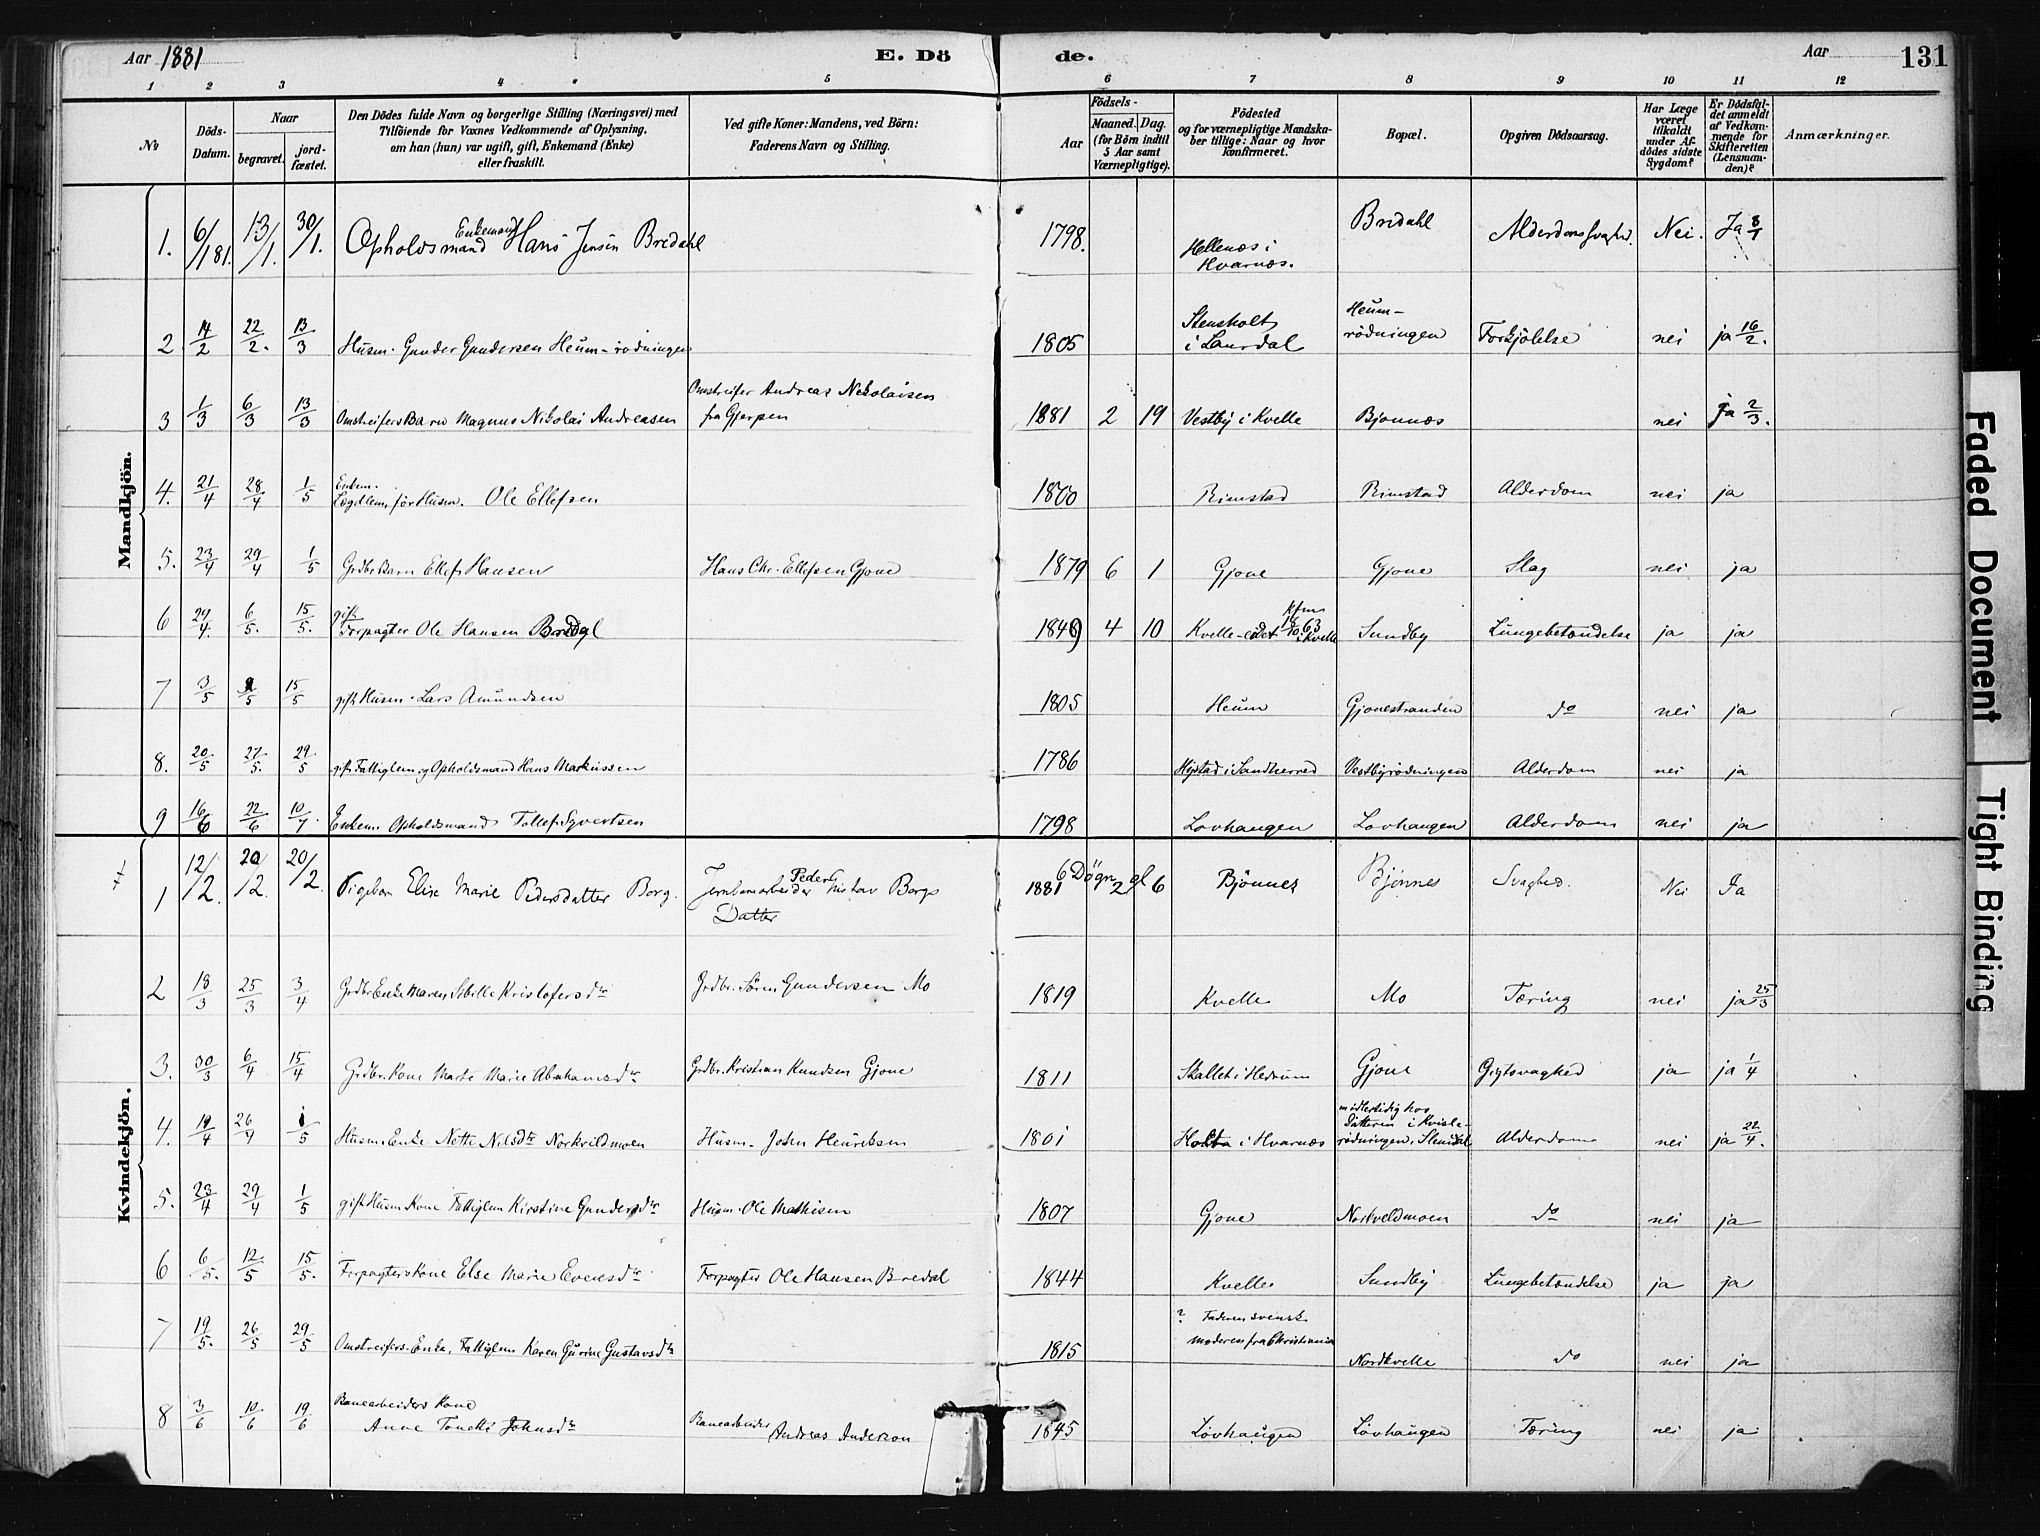 Aar 1881
E. Dö
de.
Aar
131
1 2 3 4 5 6 7 8 9 10 11 12
No
Döds-Datum.
Naar
begravet.
jord-fæstet.
Den Dödes fulde Navn og borgerlige Stilling (Næringsvei) med
Tilföiende for Voxnes Vedkommende af Oplysning,
om han (hun) var ugift, gift, Enkemand (Enke)
eller fraskilt.
Ved gifte Koner: Mandens, ved Börn:
Faderens Navn og Stilling.
Födsels-
Aar
Maaned. Dag.
(for Börn indtil
5 Aar samt
Værnepligtige).
Födested
og for værnepligtige Mandska-
ber tillige: Naar og hvor
konfirmeret.
Bopæl.
Opgiven Dödsaarsag.
Har Læge
været
tilkaldt
under Af-
dödes sidste
Sygdom?
Er Dödsfal-
det anmeldt
af Vedkom-
mende for
Skifteretten
(Lensman-
den)?
Anmærkninger.
Mandkjön.
1. 6/1 81. 13/1. 30/1. Opholdsmand Enkemand Hans Jensen Bredahl 1798. Hellenæs i Hvarnæs. Bredahl Alderdomssvaghed. Nei. Ja 8/1
2 14/2 22/2. 13/3 Husm. Gunder Gundersen Heum-rødningen 1805 Stensholt i Laurdal Heum-rødningen Forkjölelse nei ja 16/2.
3 1/3 6/3 13/3 Omstreifers Barn Magnus Nikolai Andreasen Omstreifer Andreas Nikolaisen fra Gjerpen 1881 2 19 Vestby i Kvelle Bjønnæs nei ja 2/3.
4. 21/4 28/4 1/5 Enkem. Lægdlem, før Husm. Ole Ellefsen 1800 Rimstad Rimstad Alderdom nei ja
5. 23/4 29/4 1/5 Grdbr. Barn Ellef Hansen Hans Chr. Ellefsen Gjone 1879 6 1 Gjone Gjone Slag nei ja
6 29/4. 6/5. 15/5. gift Forpagter Ole Hansen Bredal 1849 4 10 Kvelle-eidet Kfm 18/10 63 i Kvelle Sundby Lungebetændelse ja ja
7 3/5 9/5 15/5 gift Husm. Lars Amundsen 1805 Heum Gjonestranden do nei ja
8. 20/5 27/5. 29/5 gift Fattiglem og Opholdsmand Hans Markussen 1786 Hystad i Sandherred Vestbyrødningen Alderdom nei ja
9 16/6 22/6 10/7. Enkem. Opholdsmand Tollef Syvertsen 1798 Løvhaugen Løvhaugen Alderdom nei ja
Kvindekjön.
1 12/2. 20/2. 20/2. Pigebarn Elise Marie Pedersdatter Borg. Jernbanearbeider Peder Gustav Borgs Datter 1881 6 Døgn gl 2 6 Bjönnes Bjönnes Svaghed. Nei Ja
2 18/3 25/3 3/4 Grdbr. Enke Maren Sibille Kristofersdtr Grdbr. Sören Gundersen Mo 1819 Kvelle Mo Tæring nei ja 25/3
3. 30/3 6/4 15/4 Grdbr. Kone Marte Marie Abrahamsdtr Grdbr. Kristian Knudsen Gjone 1811 Skallet i Hedrum Gjone Gigtsvaghed ja ja 1/4
4. 19/4 26/4 1/5 Husm. Enke Nette Nilsdtr Norkvildmoen Husm. John Henriksen 1801 Holtra i Hvarnæs midlertidig hos Datteren i Kvisle-rødningen, Slemdal Alderdom nei ja 22/4.
5. 23/4 29/4 1/5 gift Husm. Kone Fattiglem Kirstine Gundersdtr Husm. Ole Mathisen 1807 Gjone Norkveldmoen do nei ja
6 6/5. 12/5 15/5. Forpagters Kone Else Marie Evensdtr Forpagter Ole Hansen Bredal 1844 Kvelle Sundby Lungebetændelse ja ja
7 19/5. 26/5 29/5 Omstreifers Enke, Fattiglem Karen Gurine Gustavsdtr 1815 ? Faderen svensk moderen fra Christiania Nordkvelle do nei ja
8 3/6 10/6 19/6 Banearbeiders Kone Anne Tonette Johnsdtr Banearbeider Andreas Anderson 1845 Løvhaugen Løvhaugen Tæring nei ja
Faded Document
Tight Binding